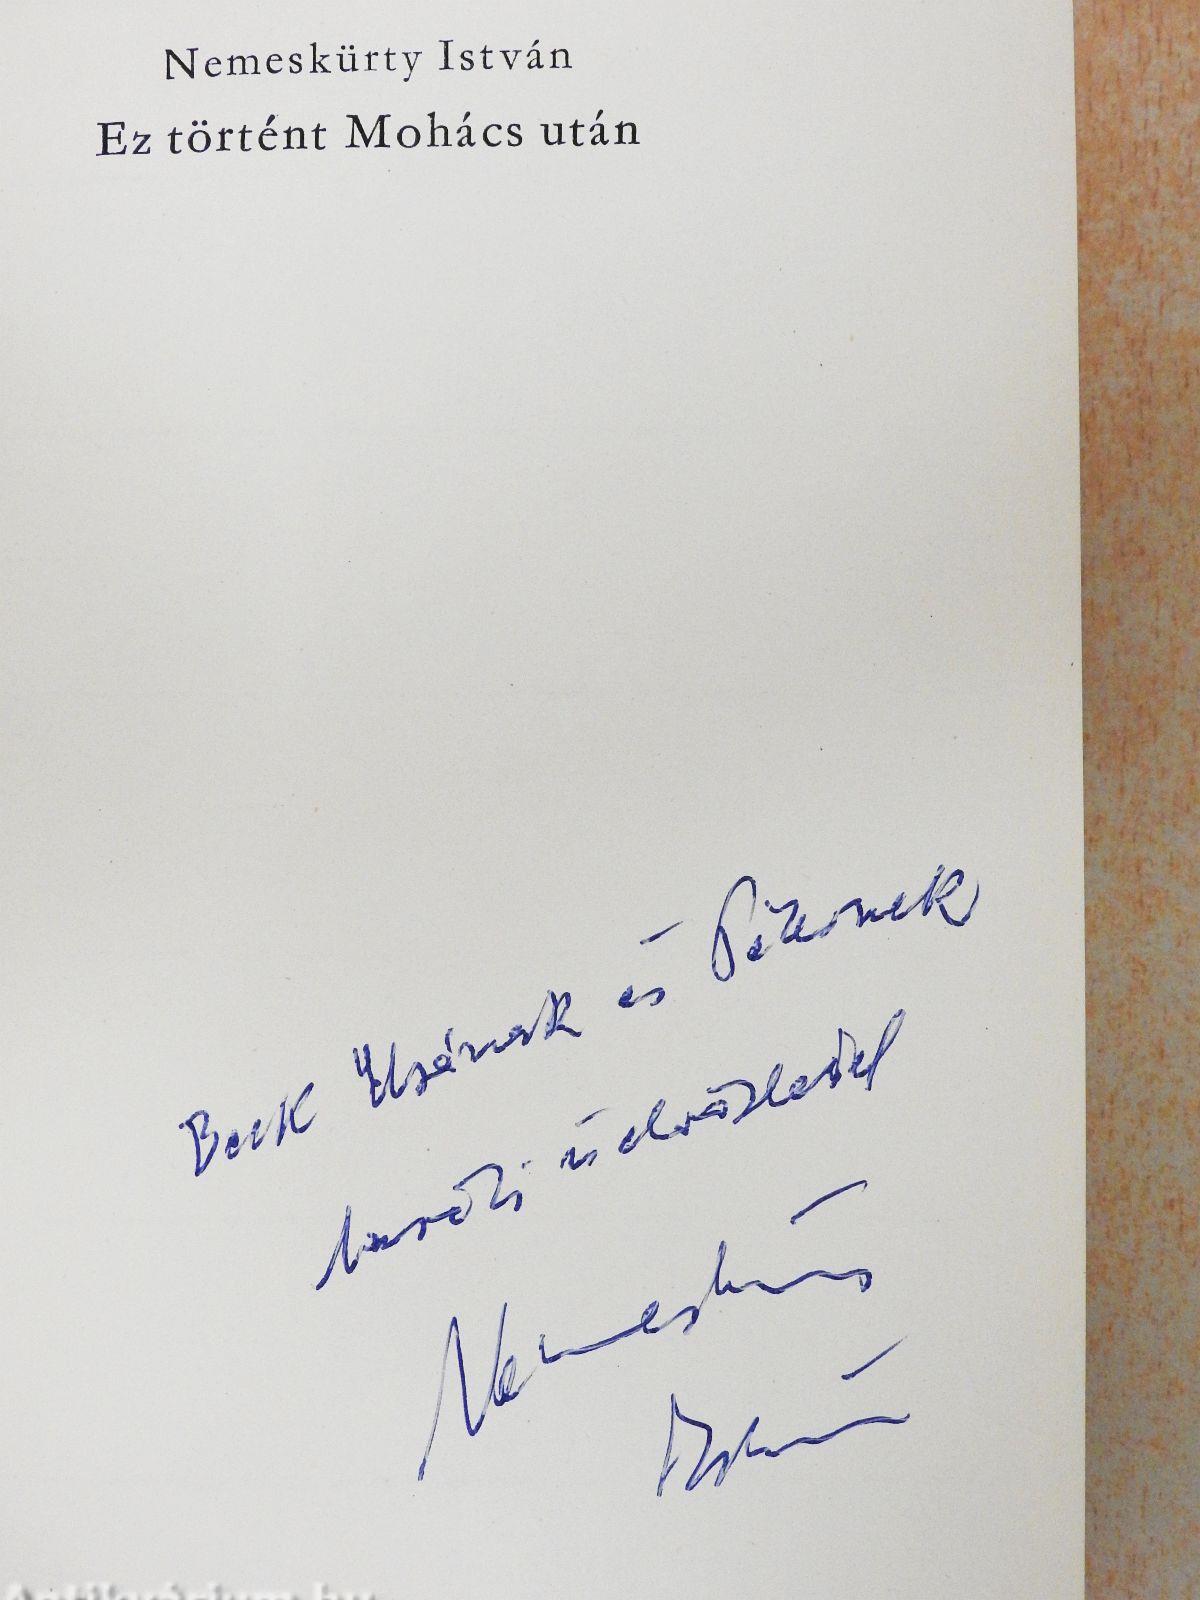 Nemeskürty István
Ez történt Mohács után
Beck Ilzsának és Péternek
baráti üdvözlettel
Nemeskürty
István